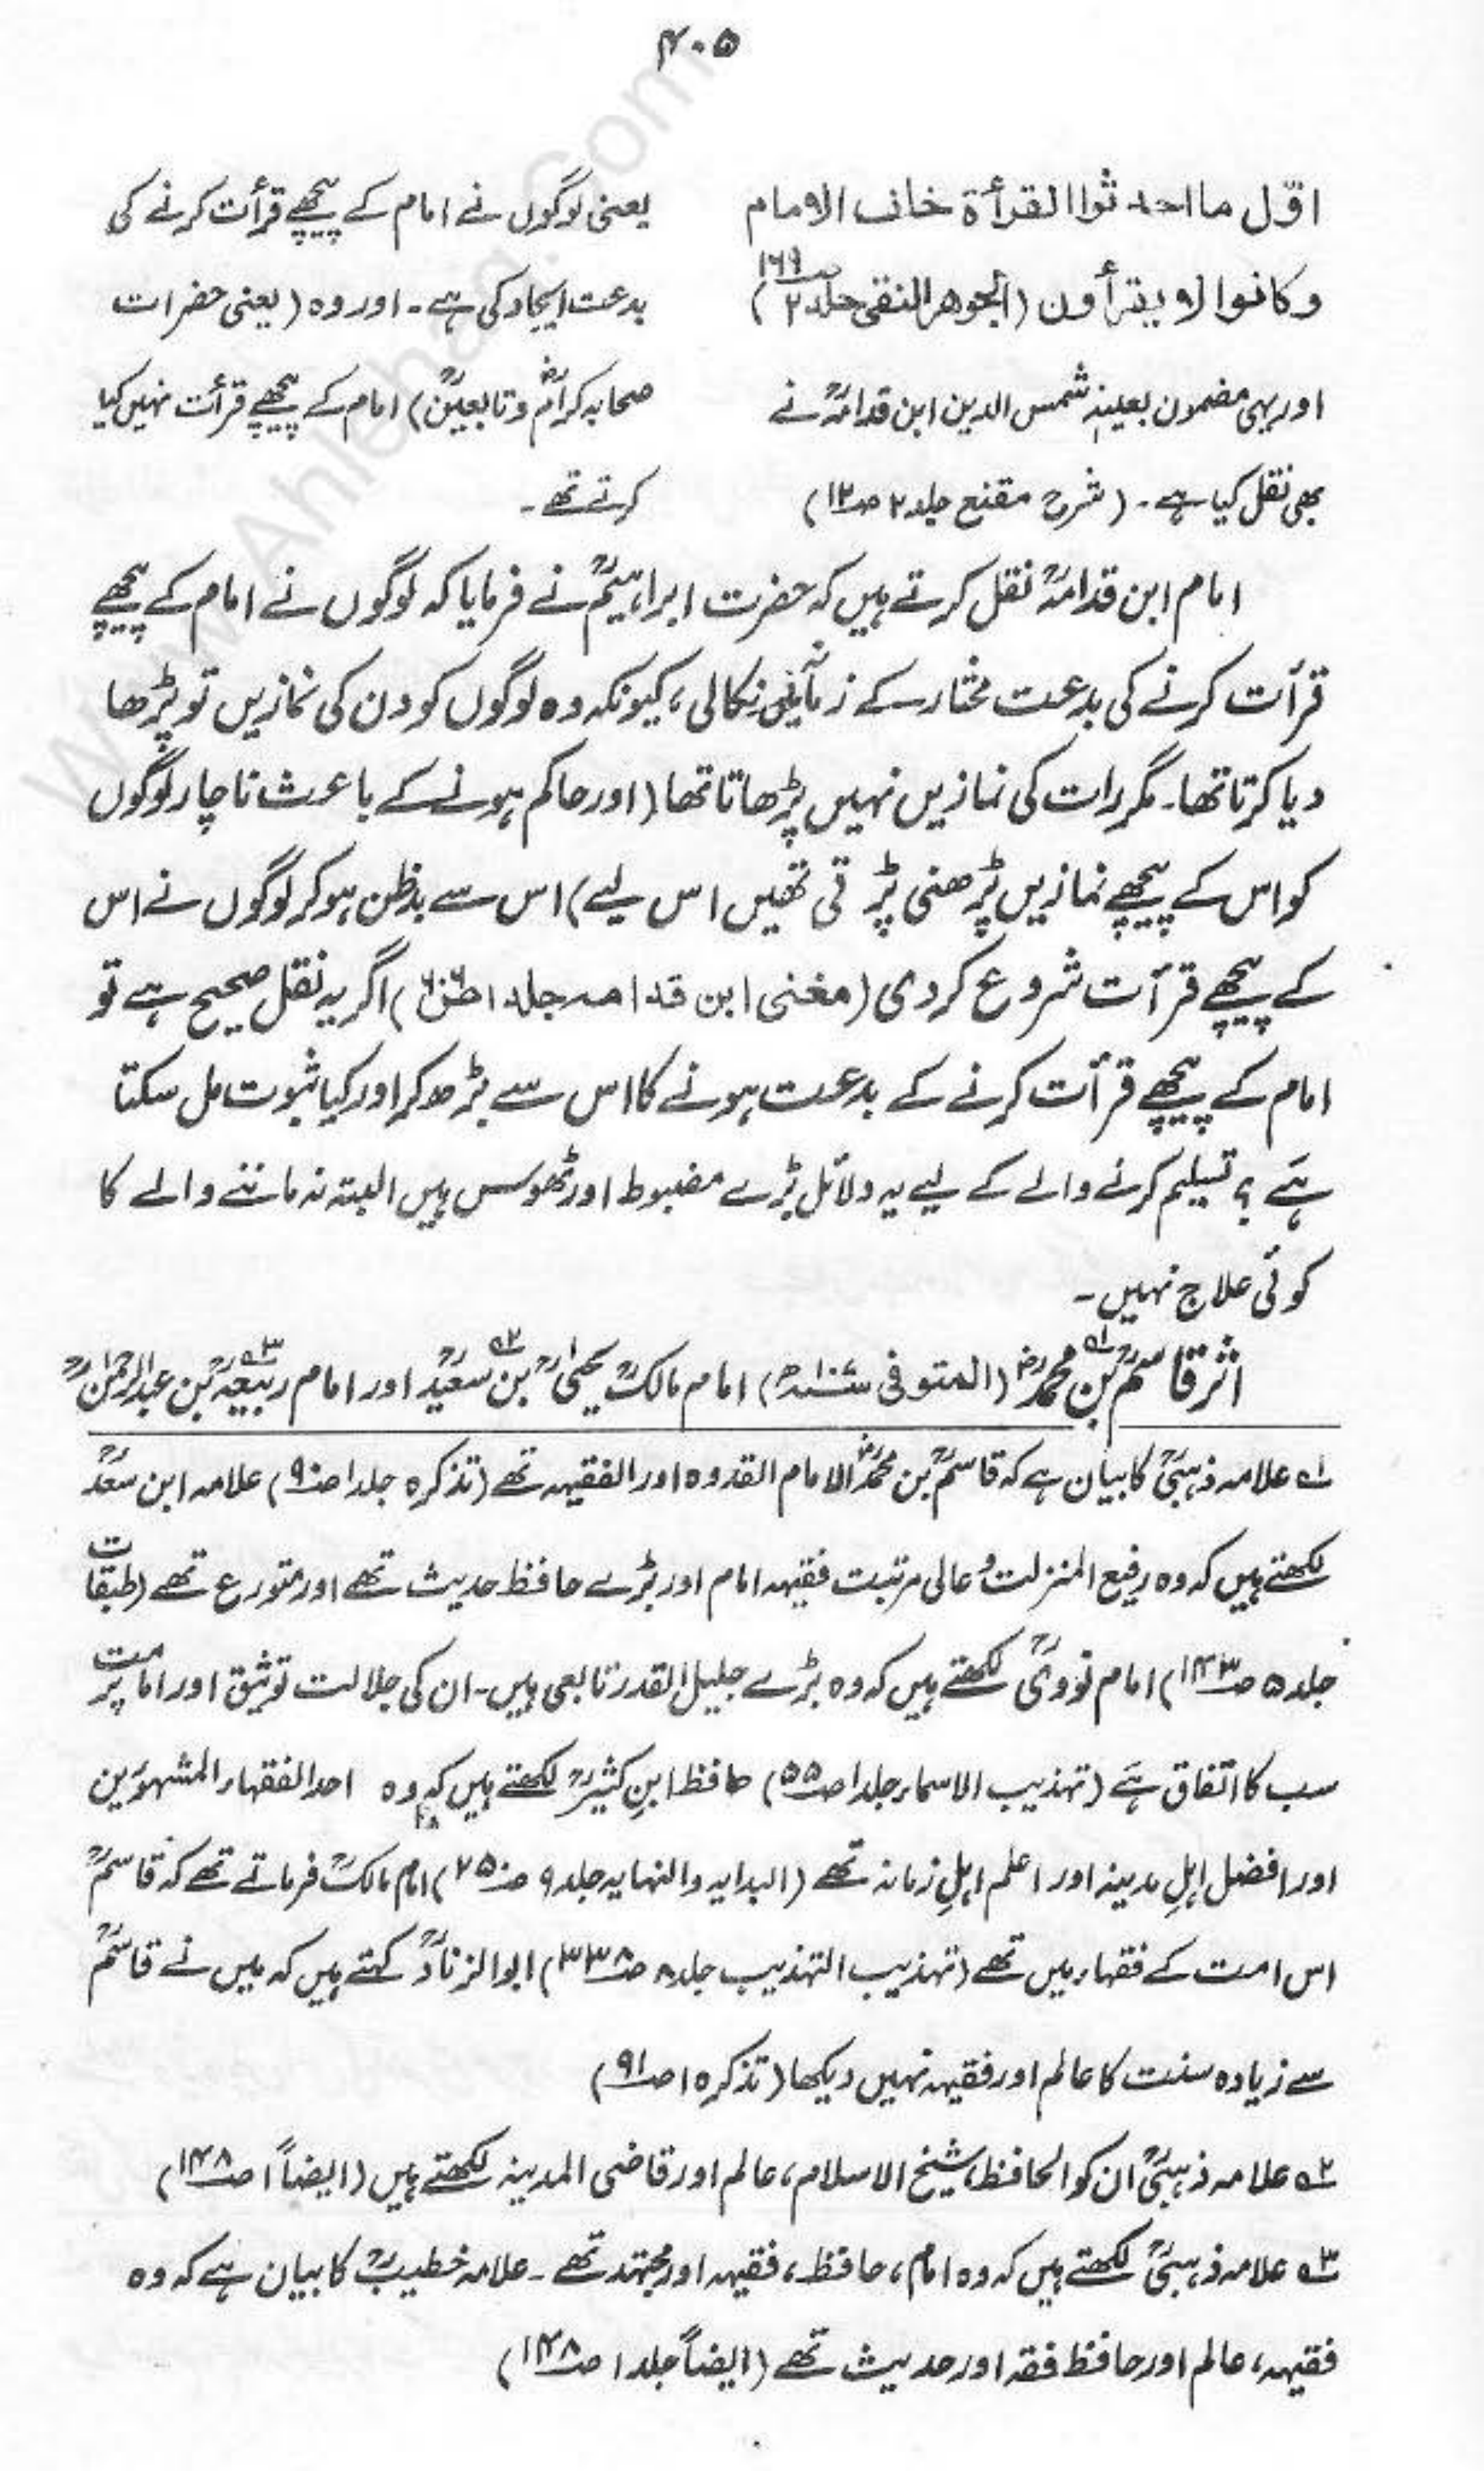 ۴۰۵
اوّل ما احدثوا القرأة خلف الامام
وكانوا لا يقرأون (الجوهر النقى جلد ۲ ص۱۶۹)
اور یہی مضمون بعینہٖ شمس الدین ابن قدامہؒ نے
بھی نقل کیا ہے۔ (شرح مقنع جلد ۲ ص۱۲)
یعنی لوگوں نے امام کے پیچھے قرأت کرنے کی
بدعت ایجاد کی ہے۔ اور وہ (یعنی حضرات
صحابہ کرامؓ و تابعینؒ) امام کے پیچھے قرأت نہیں کیا
کرتے تھے۔
امام ابن قدامہؒ نقل کرتے ہیں کہ حضرت ابراہیمؒ نے فرمایا کہ لوگوں نے امام کے پیچھے
قرأت کرنے کی بدعت مختار کے زمانے میں نکالی، کیونکہ وہ لوگوں کو دن کی نمازیں تو پڑھا
دیا کرتا تھا۔ مگر رات کی نمازیں نہیں پڑھاتا تھا (اور حاکم ہونے کے باعث ناچار لوگوں
کو اس کے پیچھے نمازیں پڑھنی پڑتی تھیں اس لیے) اس سے بدظن ہو کر لوگوں نے اس
کے پیچھے قرأت شروع کر دی (مغنی ابن قدامہ جلد ۱) اگر یہ نقل صحیح ہے تو
امام کے پیچھے قرأت کرنے کے بدعت ہونے کا اس سے بڑھ کر اور کیا ثبوت مل سکتا
ہے؟ تسلیم کرنے والے کے لیے یہ دلائل بڑے مضبوط اور ٹھوس ہیں البتہ نہ ماننے والے کا
کوئی علاج نہیں۔
اثر قاسمؒ بن محمدؒ۱؎ (المتوفی) امام مالکؒ یحییٰؒ بن سعیدؒ۲؎ اور امام ربیعہؒ۳؎ بن عبدالرحمٰنؒ
۱؎ علامہ ذہبیؒ کا بیان ہے کہ قاسمؒ بن محمدؒ الامام القدوہ اور الفقیہہ تھے (تذکرہ جلد ۱ ص۹۰) علامہ ابن سعدؒ
لکھتے ہیں کہ وہ رفیع المنزلت و عالی مرتبت فقیہہ امام اور بڑے حافظ حدیث تھے اور متورع تھے (طبقات
جلد ۵ ص۱۴۳) امام نوویؒ لکھتے ہیں کہ وہ بڑے جلیل القدر تابعی ہیں۔ ان کی جلالت توثیق اور امامت پر
سب کا اتفاق ہے (تہذیب الاسماء جلد ۱ ص۵۵) حافظ ابن کثیرؒ لکھتے ہیں کہ وہ احد الفقہاء المشہورین
اور افضل اہلِ مدینہ اور اعلم اہلِ زمانہ تھے (البدایہ والنہایہ جلد ۹ ص۲۵۰) امام مالکؒ فرماتے تھے کہ قاسمؒ
اس امت کے فقہاء میں تھے (تہذیب التہذیب جلد ۸ ص۳۳۵) ابو الزنادؒ کہتے ہیں کہ میں نے قاسمؒ
سے زیادہ سنت کا عالم اور فقیہہ نہیں دیکھا (تذکرہ ۱ ص۹۱)
۲؎ علامہ ذہبیؒ ان کو الحافظ، شیخ الاسلام، عالم اور قاضی المدینہ لکھتے ہیں (ایضاً ۱ ص۱۴۸)
۳؎ علامہ ذہبیؒ لکھتے ہیں کہ وہ امام، حافظ، فقیہہ اور مجتہد تھے۔ علامہ خطیبؒ کا بیان ہے کہ وہ
فقیہہ، عالم اور حافظ فقہ اور حدیث تھے (ایضاً جلد ۱ ص۱۴۸)
www.Ahlehaq.Com